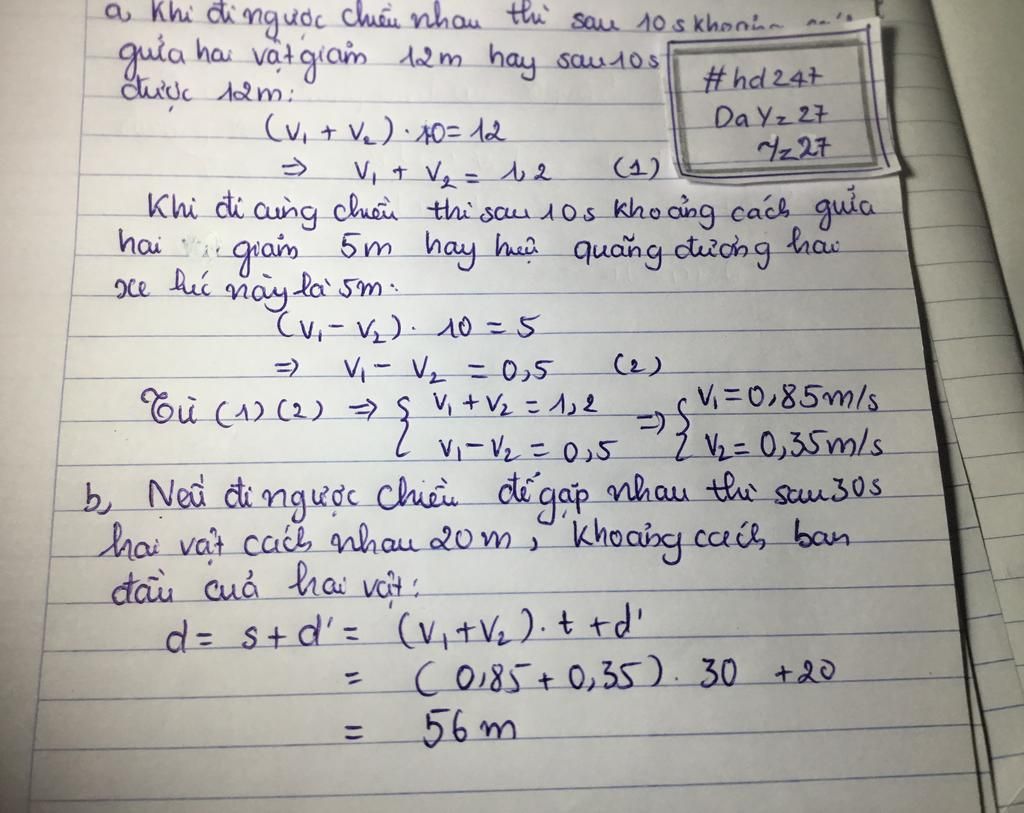 a, Khi đi ngược chiều nhau thì sau 10s
giữa hai vật giảm 12m hay sau 10s
được 12m:
(V₁ + V₂) . 10 = 12
⇒ V₁ + V₂ = 1,2 (1)
Khi đi cùng chiều thì sau 10s khoảng cách giữa
hai giảm 5m hay hiệu quãng đường hai
xe lúc này là 5m:
(V₁ - V₂) . 10 = 5
⇒ V₁ - V₂ = 0,5 (2)
Từ (1) (2) ⇒ { V₁ + V₂ = 1,2 ⇒ { V₁ = 0,85m/s
V₁ - V₂ = 0,5 V₂ = 0,35m/s
b, Nếu đi ngược chiều để gặp nhau thì sau 30s
hai vật cách nhau 20m, khoảng cách ban
đầu của hai vật:
d = s + d' = (V₁ + V₂) . t + d'
= (0,85 + 0,35) . 30 + 20
= 56 m
#hd247
DaYz27
Yz27